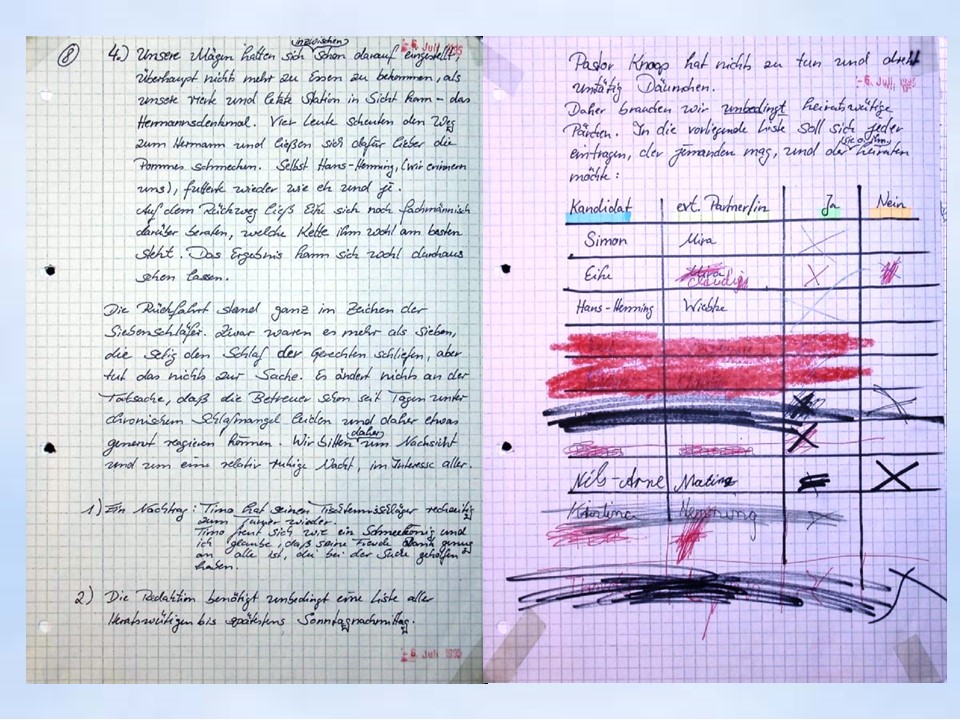 8
4.) Unsere Mägen hatten sich inzwischen schon darauf eingestellt,
überhaupt nichts mehr zu Essen zu bekommen, als
unsere vierte und letzte Station in Sicht kam - das
Hermannsdenkmal. Vier Leute schenkten den Weg
zum Hermann und ließen sich dafür lieber die
Pommes schmecken. Selbst Hans-Henning, (wir erinnern
uns), futterte wieder wie eh und je.
Auf dem Rückweg ließ Eike sich noch fachmännisch
darüber beraten, welche Kette ihm wohl am besten
steht. Das Ergebnis kann sich wohl durchaus
sehen lassen.
Die Rückfahrt stand ganz im Zeichen der
Siebenschläfer. Zwar waren es mehr als Sieben,
die selig den Schlaf der Gerechten schliefen, aber
tut das nichts zur Sache. Es ändert nichts an der
Tatsache, daß die Betreuer schon seit Tagen unter
chronischem Schlafmangel leiden und daher etwas
genervt reagieren können. Wir bitten daher um Nachsicht
und um eine relativ ruhige Nacht, im Interesse aller.
1) Ein Nachtrag: Timo hat seinen Tischtennisschläger
zum wieder.
Timo freut sich wie ein Schneekönig und
ich glaube, daß seine Freude Dank genug
an alle ist, die bei der Suche geholfen
haben.
2) Die Redaktion benötigt unbedingt eine Liste aller
Heiratswütigen bis spätestens Sonntagnachmittag.
- 6. Juli 1995
Pastor Knoop hat nichts zu tun und dreht
untätig Däumchen.
- 6. Juli 1995
Daher brauchen wir unbedingt heiratswütige
Pärchen. In die vorliegende Liste soll sich jeder
eintragen, der jemanden mag, und der sie o. ihn heiraten
möchte:
Kandidat evt. Partner/in Ja Nein
Simon Mira
Eike Claudia
Hans-Henning Wiebke
Nils-Arne
Kristina Henning